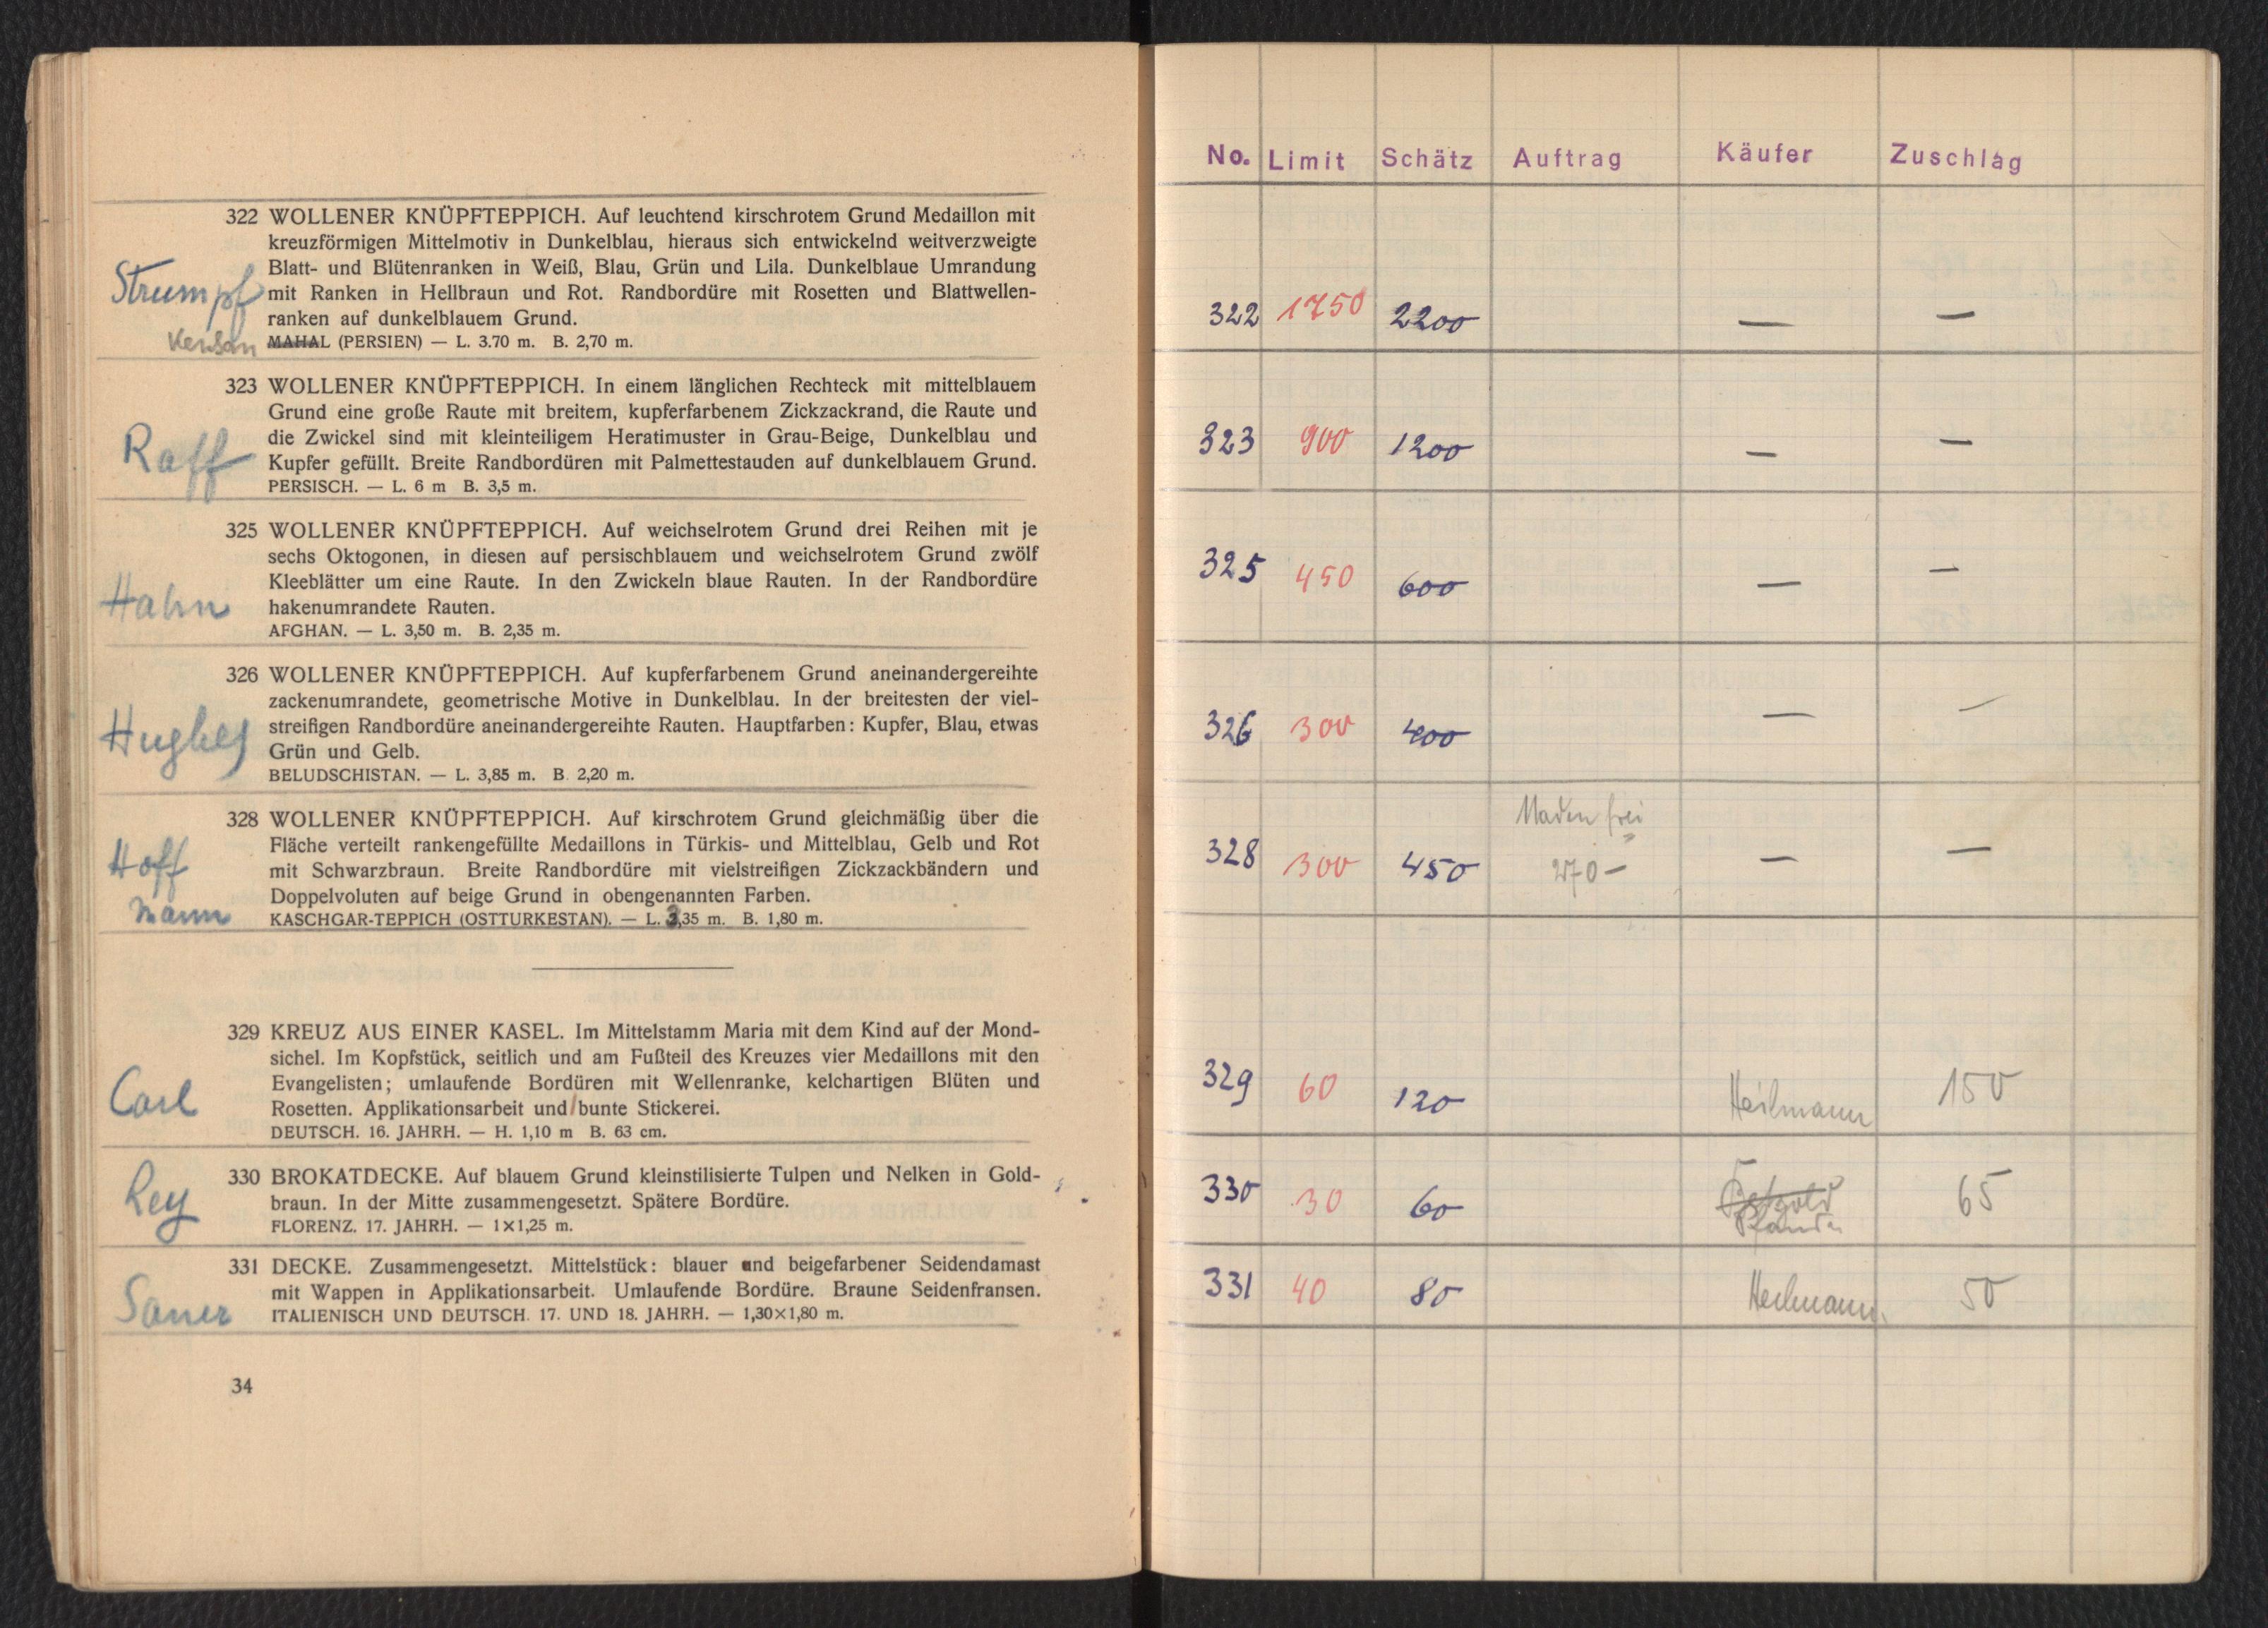 322 WOLLENER KNÜPFTEPPICH. Auf leuchtend kirschrotem Grund Medaillon mit
kreuzförmigen Mittelmotiv in Dunkelblau, hieraus sich entwickelnd weitverzweigte
Blatt- und Blütenranken in Weiß, Blau, Grün und Lila. Dunkelblaue Umrandung
Strumpf mit Ranken in Hellbraun und Rot. Randbordüre mit Rosetten und Blattwellen-
ranken auf dunkelblauem Grund.
MAHAL (PERSIEN) — L. 3.70 m. B. 2,70 m.
323 WOLLENER KNÜPFTEPPICH. In einem länglichen Rechteck mit mittelblauem
Grund eine große Raute mit breitem, kupferfarbenem Zickzackrand, die Raute und
die Zwickel sind mit kleinteiligem Heratimuster in Grau-Beige, Dunkelblau und
Raff Kupfer gefüllt. Breite Randbordüren mit Palmettestauden auf dunkelblauem Grund.
PERSISCH. — L. 6 m B. 3,5 m.
325 WOLLENER KNÜPFTEPPICH. Auf weichselrotem Grund drei Reihen mit je
sechs Oktogonen, in diesen auf persischblauem und weichselrotem Grund zwölf
Kleeblätter um eine Raute. In den Zwickeln blaue Rauten. In der Randbordüre
Hahn hakenumrandete Rauten.
AFGHAN. — L. 3,50 m. B. 2,35 m.
326 WOLLENER KNÜPFTEPPICH. Auf kupferfarbenem Grund aneinandergereihte
zackenumrandete, geometrische Motive in Dunkelblau. In der breitesten der viel-
Hughes streifigen Randbordüre aneinandergereihte Rauten. Hauptfarben: Kupfer, Blau, etwas
Grün und Gelb.
BELUDSCHISTAN. — L. 3,85 m. B. 2,20 m.
328 WOLLENER KNÜPFTEPPICH. Auf kirschrotem Grund gleichmäßig über die
Fläche verteilt rankengefüllte Medaillons in Türkis- und Mittelblau, Gelb und Rot
Hoff mit Schwarzbraun. Breite Randbordüre mit vielstreifigen Zickzackbändern und
Doppelvoluten auf beige Grund in obengenannten Farben.
mann KASCHGAR-TEPPICH (OSTTURKESTAN). — L. 3,35 m. B. 1,80 m.
329 KREUZ AUS EINER KASEL. Im Mittelstamm Maria mit dem Kind auf der Mond-
sichel. Im Kopfstück, seitlich und am Fußteil des Kreuzes vier Medaillons mit den
Evangelisten; umlaufende Bordüren mit Wellenranke, kelchartigen Blüten und
Carl Rosetten. Applikationsarbeit und/bunte Stickerei.
DEUTSCH. 16. JAHRH. — H. 1,10 m B. 63 cm.
330 BROKATDECKE. Auf blauem Grund kleinstilisierte Tulpen und Nelken in Gold-
Rey braun. In der Mitte zusammengesetzt. Spätere Bordüre.
FLORENZ. 17. JAHRH. — 1×1,25 m.
331 DECKE. Zusammengesetzt. Mittelstück: blauer und beigefarbener Seidendamast
mit Wappen in Applikationsarbeit. Umlaufende Bordüre. Braune Seidenfransen.
Sauer ITALIENISCH UND DEUTSCH. 17. UND 18. JAHRH. — 1,30×1,80 m.
34
No. Limit Schätz Auftrag Käufer Zuschlag
322 1750 2200 — —
323 900 1200 — —
325 450 600 — —
326 300 400 — —
frei
328 300 450 270 — — —
329 60 120 Heilmann 150
330 30 60 65
331 40 80 Heilmann 50